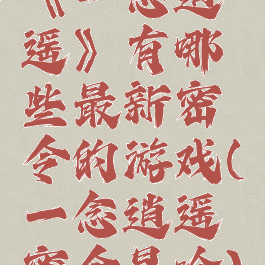 《一念逍
遥》有哪
些最新密
令的游戏(
一念逍遥
密令是啥)